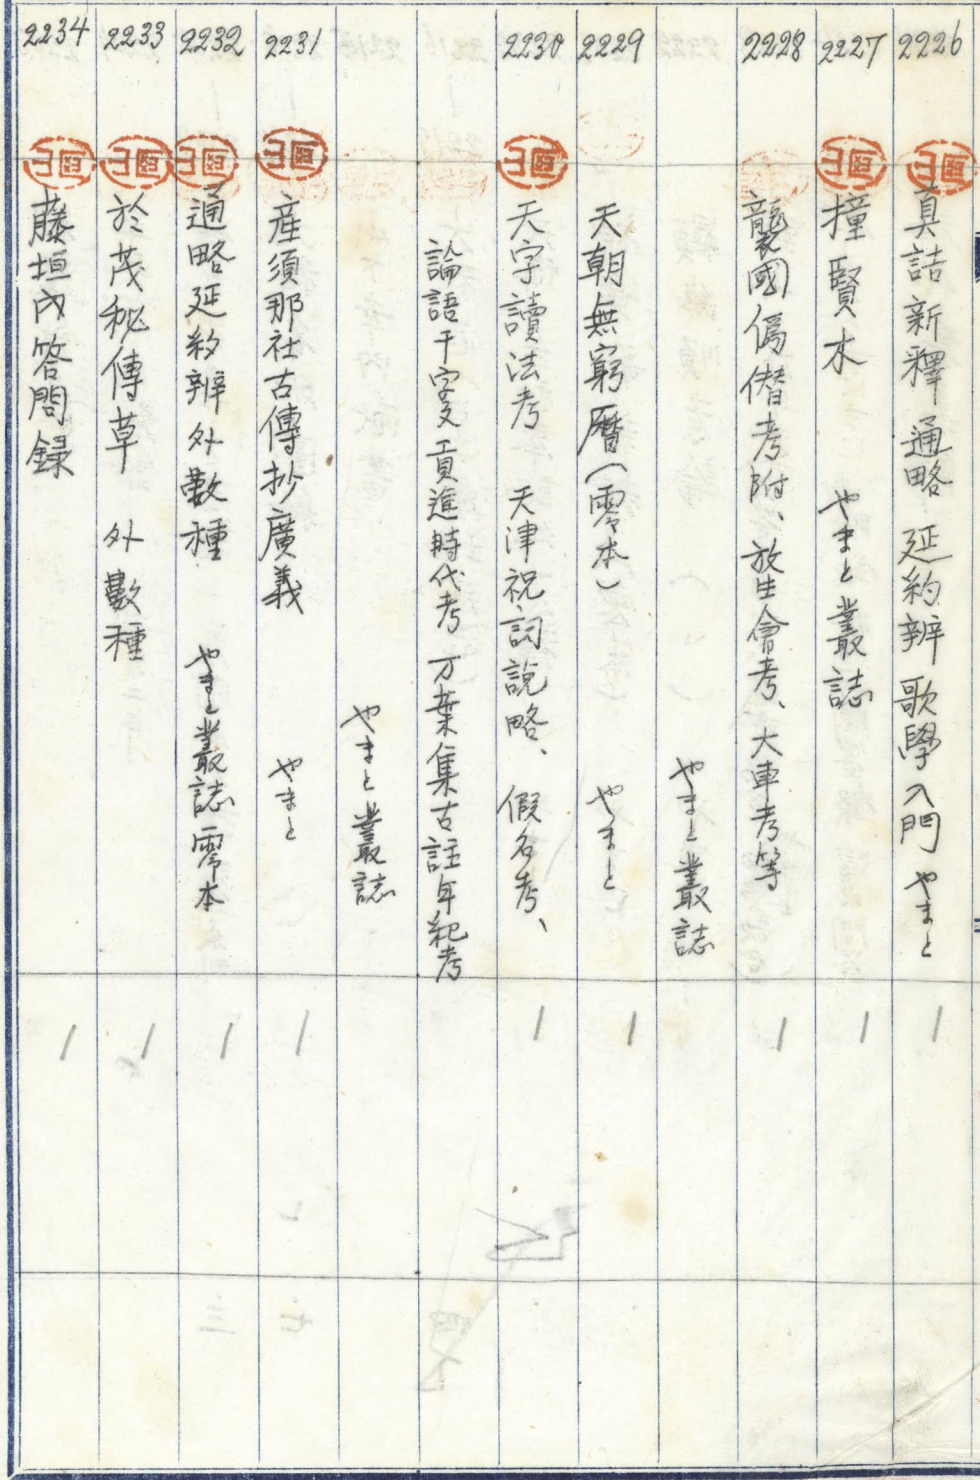 2226 真詰新釋 通略 延約辨 歌學入門 やまと 1
2227 撞賢木 やまと叢誌 1
2228 襲國偽僭考附、放生會考、大車考等 1
やまと叢誌
2229 天朝無窮暦(零本) やまと 1
2230 天字讀法考 天津祝詞説略、假名考、 1
論語千字文貢進時代考 万葉集古註年紀考
やまと叢誌
2231 産須那社古傳抄廣義 やまと 1
2232 通略延約辨外數種 やまと叢誌零本 1
2233 於茂秘傳草 外數種 1
2234 藤垣内答問録 1